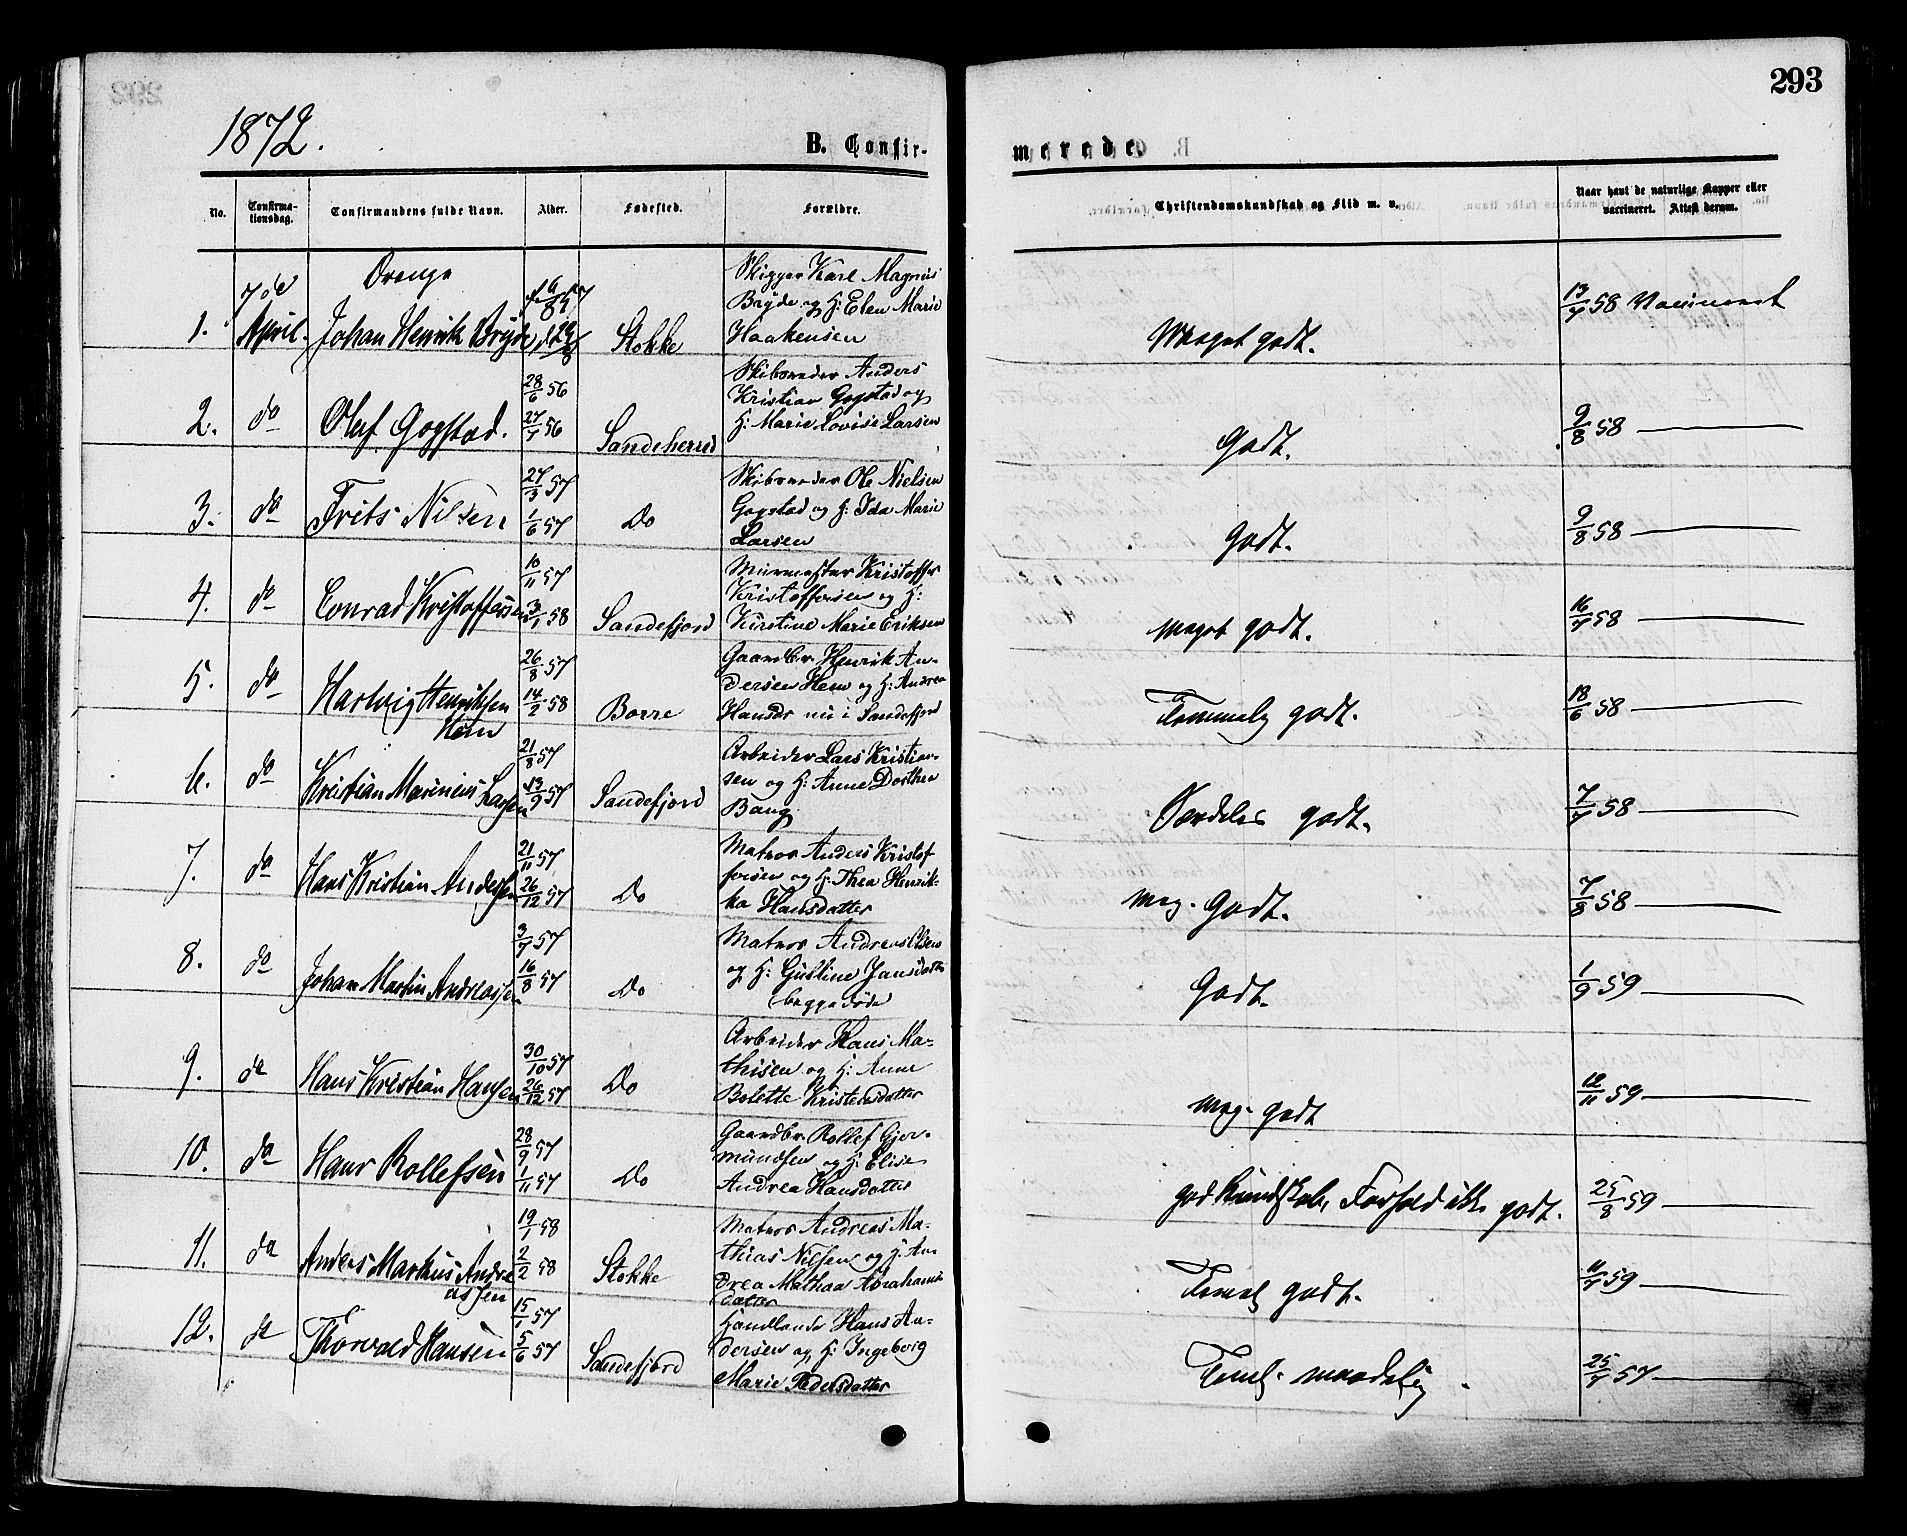 293
1872.
B. Confirmerede
No. Confirmationsdag. Confirmandens fulde Navn. Alder. Fødested. Forældre. Christendomskundskab og Flid m. v. Naar havt de naturlige Kopper eller vaccineret. Attest derom.
Drenge
1. 7de April. Johan Henrik Bryde Stokke
Skipper Karl Magnus
Bryde og H: Elen Marie
Haakensen
Meget godt. 13/7 58 Vaccineret
2. do Oluf Gogstad. 28/6 56 27/7 56 Sandeherred
Skibsreder Anders
Kristian Gogstad og
H: Marie Lovise Larsen
Godt. 9/8 58
3. do Frits Nilsen 27/3 57 1/6 57 Do
Skibsreder Ole Nielsen
Gogstad og H: Ida Marie
Larsen
Godt. 9/8 58
4. do Conrad Kristoffersen 10/11 57 3/1 58 Sandefjord
Murmester Kristoffer
Kristoffersen og H:
Kirstine Marie Eriksen
Meget godt. 16/7 58
5. do Hartvig Henriksen
Hem 26/8 57 14/2 58 Borre
Gaardbr. Henrik An-
dersen Hem og H: Andrea
Hansdr nu i Sandefjord
Temmelig godt. 18/6 58
6. do Kristian Marinius Larsen 21/8 57 13/9 57 Sandefjord
Arbeider Lars Kristian-
sen og H: Anne Dorthea
Bang
Særdeles godt. 7/7 58
7. do Hans Kristian Andersen 21/11 57 26/12 57 Do
Matros Anders Kristof
fersen og H: Thea Henrik-
ka Hansdatter
Meg. Godt. 7/8 58
8. do Johan Martin Andreassen 3/7 57 16/8 57 Do
Matros Andreas Olsen
og H: Gustine Jansdatter
(begge døde
Godt. 1/9 59
9. do Hans Kristian Hansen 30/10 57 26/12 57 Do
Arbeider Hans Ma-
thisen og H: Anne
Bolette Kristensdatter
Meg. godt 12/11 59
10. do Hans Rollefsen 28/9 57 1/11 57 Do
Gaardbr. Rollef Gjer-
mundsen og H: Elise
Andrea Hansdatter
god Kundskab, Forhold ikke godt. 25/8 59
11. do Anders Markus Andre
assen 19/1 58 2/2 58 Stokke
Matros Andreas Ma-
thias Nilsen og H: An-
drea Mathea Abrahams
datter
Temel. godt. 11/7 59
12. do Thorvald Hansen 15/1 57 5/6 57 Sandefjord
Handlende Hans An-
dersen og H: Ingeborg
Marie Pedersdatter
Teml. maadelig. 25/7 57